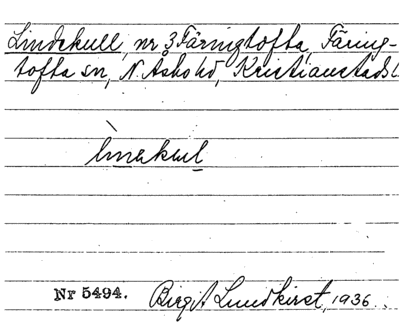 Lindekull, nr 3 Färingtofta, Färing-
tofta sn, N. Åsbo hd, Kristianstads l
linəkul
Nr 5494. Birgit Lundkvist, 1936.